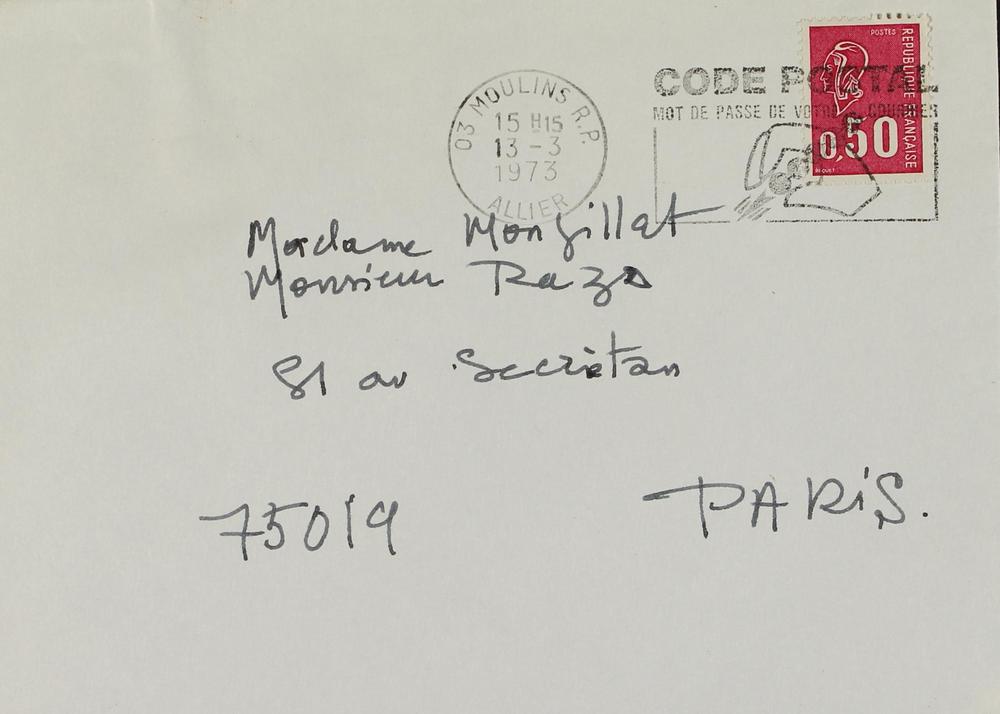 03 MOULINS R.P.
15 H15
13 - 3
1973
ALLIER
CODE POSTAL
MOT DE PASSE DE VOTRE COURRIER
POSTES
REPUBLIQUE FRANÇAISE
0,50
BEQUET
Madame Mongillat
Monsieur Raza
81 av Secrétan
75019 PARiS.